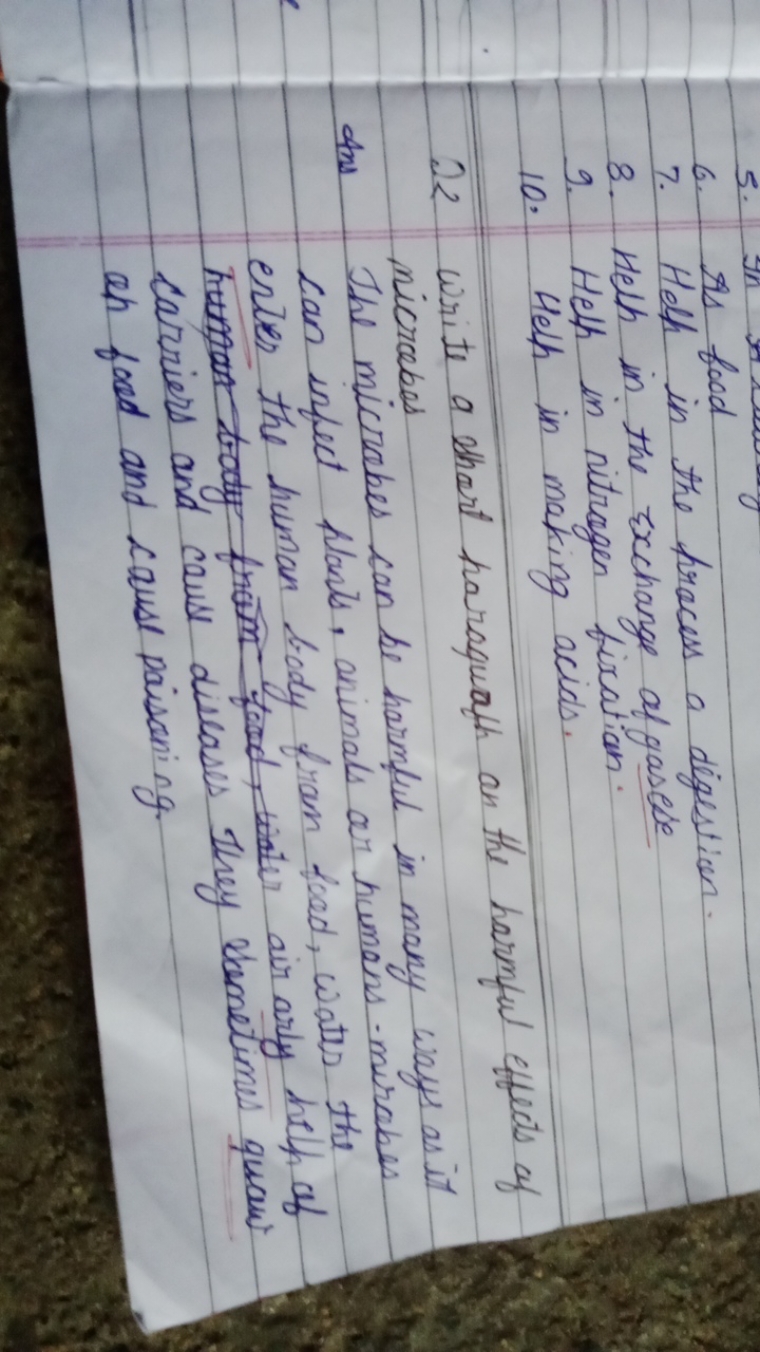 5. In
6. As food
7. Help in the process a digestion.
8. Help in the exchange of gasese
9. Help in nitrogen fixation.
10. Help in making acids.
Q2 Write a short paragraph on the harmful effects of
microbes
Ans The microbes can be harmful in many ways as it
can infect plants, animals or humans. mirobes
enter the human body from food, water the
human body from food, water air orly help of
carriers and cause diseases They sometimes quow
op food and cause poisoning.